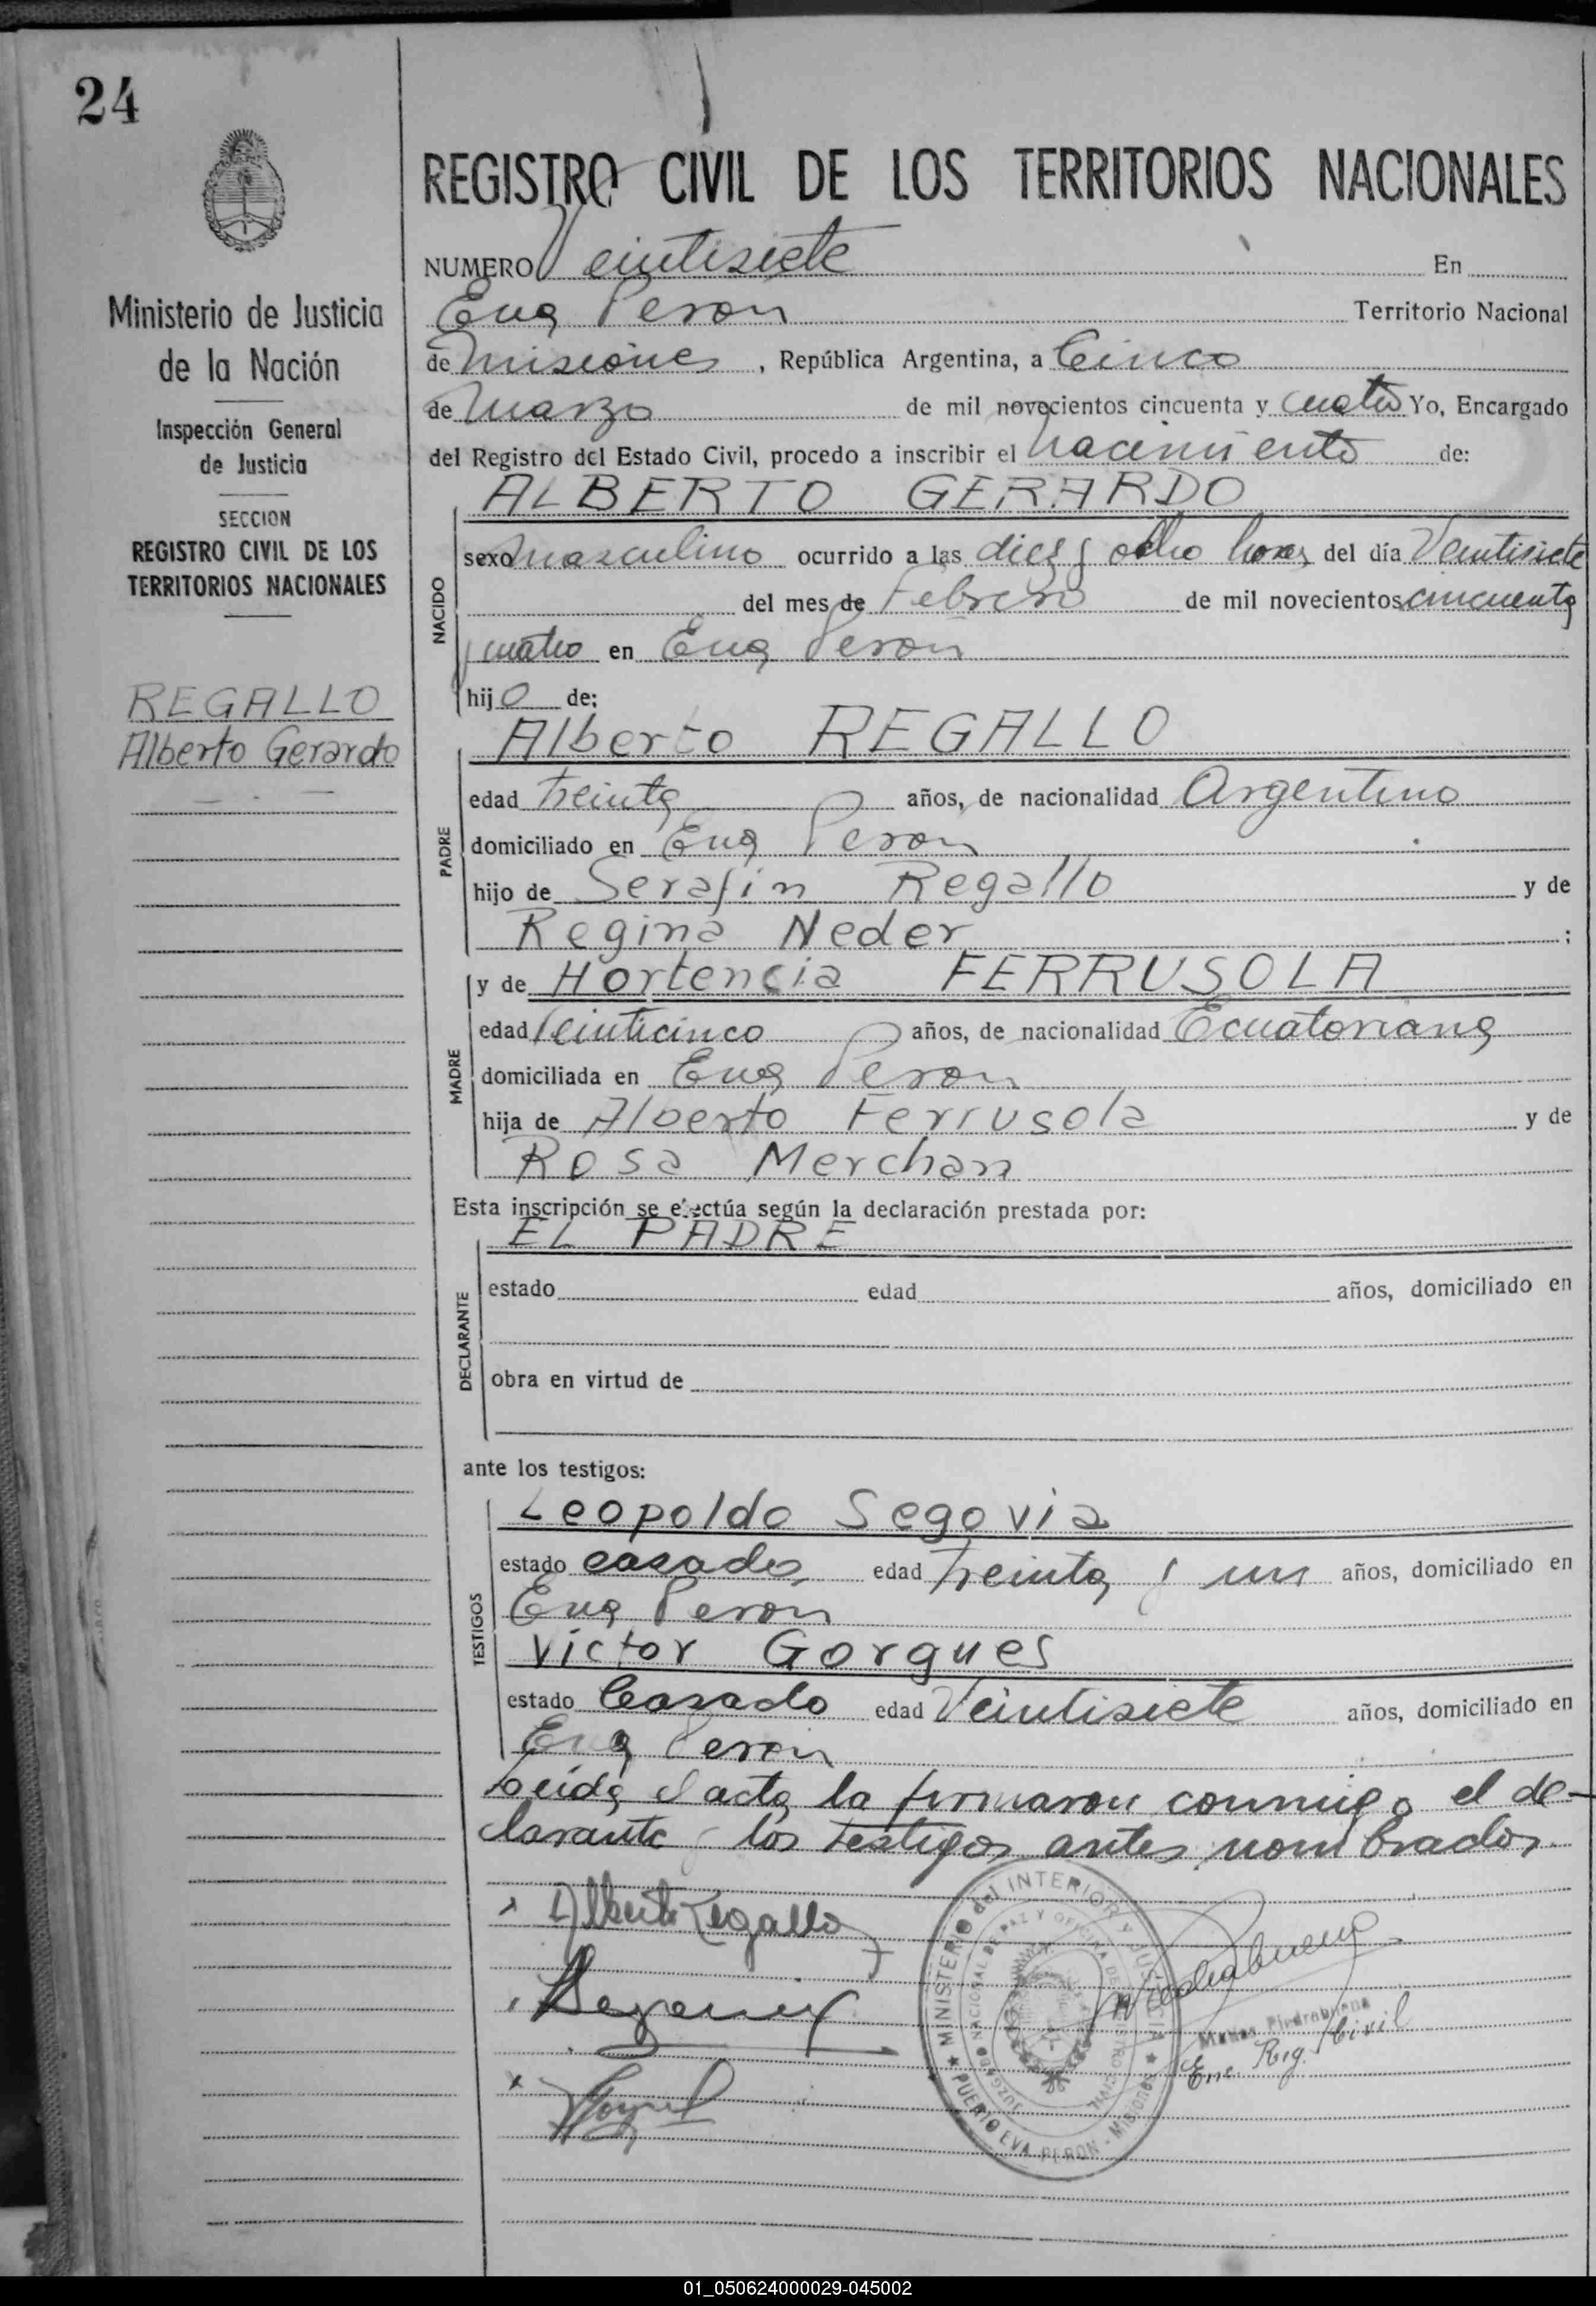 24
Ministerio de Justicia
de la Nación
Inspección General
de Justicia
SECCION
REGISTRO CIVIL DE LOS
TERRITORIOS NACIONALES
REGALLO
Alberto Gerardo
REGISTRO CIVIL DE LOS TERRITORIOS NACIONALES
NUMERO Veintisiete En
Eva Peron Territorio Nacional
de Misiones, República Argentina, a Cinco
de Marzo de mil novecientos cincuenta y cuatro Yo, Encargado
del Registro del Estado Civil, procedo a inscribir el nacimiento de:
ALBERTO GERARDO
NACIDO
sexo masculino ocurrido a las diez y ocho horas del día Veintisiete
del mes de Febrero de mil novecientos cincuenta
y cuatro en Eva Peron
hijo de:
Alberto REGALLO
PADRE
edad treinta años, de nacionalidad Argentino
domiciliado en Eva Peron
hijo de Serafin Regallo y de
Regina Neder ;
y de Hortencia FERRUSOLA
MADRE
edad Veinticinco años, de nacionalidad Ecuatoriana
domiciliada en Eva Peron
hija de Alberto Ferrusola y de
Rosa Merchan
Esta inscripción se efectúa según la declaración prestada por:
EL PADRE
DECLARANTE
estado edad años, domiciliado en
obra en virtud de
ante los testigos:
TESTIGOS
Leopoldo Segovia
estado casado edad treinta y un años, domiciliado en
Eva Peron
Victor Gorgues
estado Casado edad Veintisiete años, domiciliado en
Eva Peron
Leida el acta la firmaron conmigo el de-
clarante y los testigos antes nombrados.
Alberto Regallo
MINISTERIO del INTERIOR Y JUSTICIA
JUZGADO NACIONAL DE PAZ Y OFICINA DE REGISTRO CIVIL
PUERTO EVA PERON - Misiones
Matias Piedrabuena
Enc. Reg. Civil
01_050624000029-045002